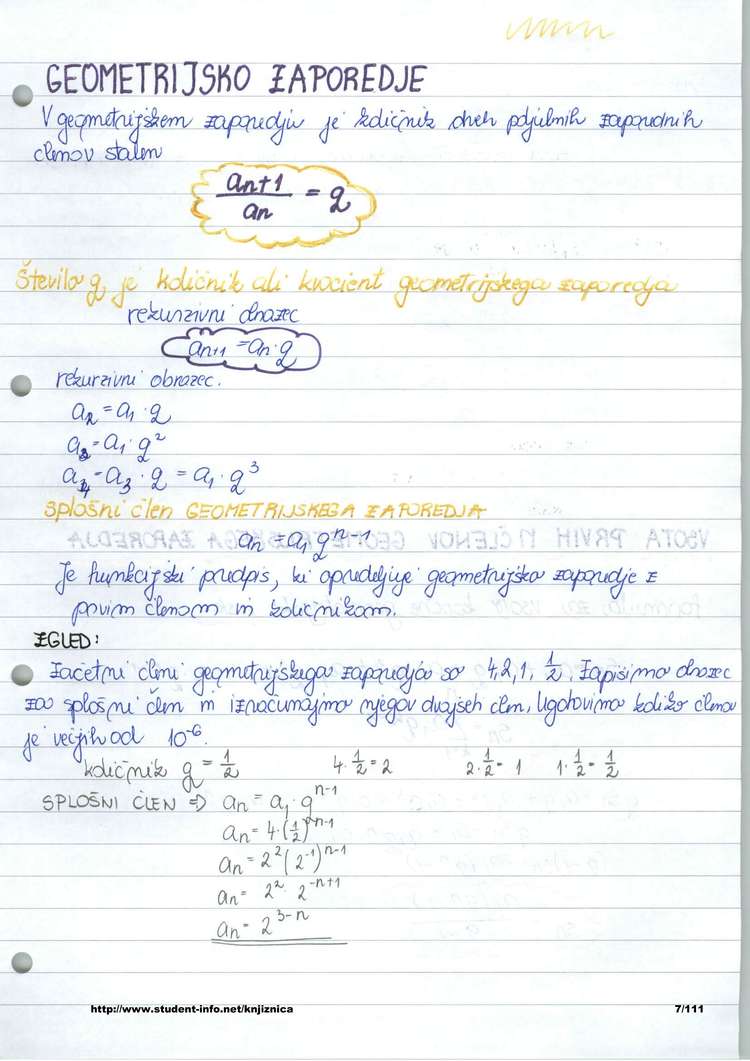 GEOMETRIJSKO ZAPOREDJE
V geometrijskem zaporedju je količnik dveh poljubnih zaporednih
členov stalen
an+1 / an = q
Število q, je količnik ali kvocient geometrijskega zaporedja
rekurzivni obrazec
an+1 = an · q
rekurzivni obrazec.
a2 = a1 · q
a3 = a1 · q²
a4 = a3 · q = a1 · q³
splošni člen GEOMETRIJSKEGA ZAPOREDJA
an = a1 q^n-1
Je funkcijski predpis, ki opredeljuje geometrijsko zaporedje z
prvim členom in količnikom.
ZGLED:
Začetni členi geometrijskega zaporedja so 4,2,1, 1/2. Zapišimo obrazec
za splošni člen in izračunajmo njegov dvajseti člen, Ugotovimo koliko členov
je večjih od 10^-6.
količnik q = 1/2 4 · 1/2 = 2 2 · 1/2 = 1 1 · 1/2 = 1/2
SPLOŠNI ČLEN => an = a1 · q^n-1
an = 4 · (1/2)^n-1
an = 2² (2^-1)^n-1
an = 2² · 2^-n+1
an = 2^3-n
http://www.student-info.net/knjiznica 7/111